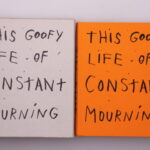 HIS GOOFY
LIFE · OF
CONSTANT
MOURNING
THIS GOOFY
LIFE · OF
CONSTANT
MOURNING